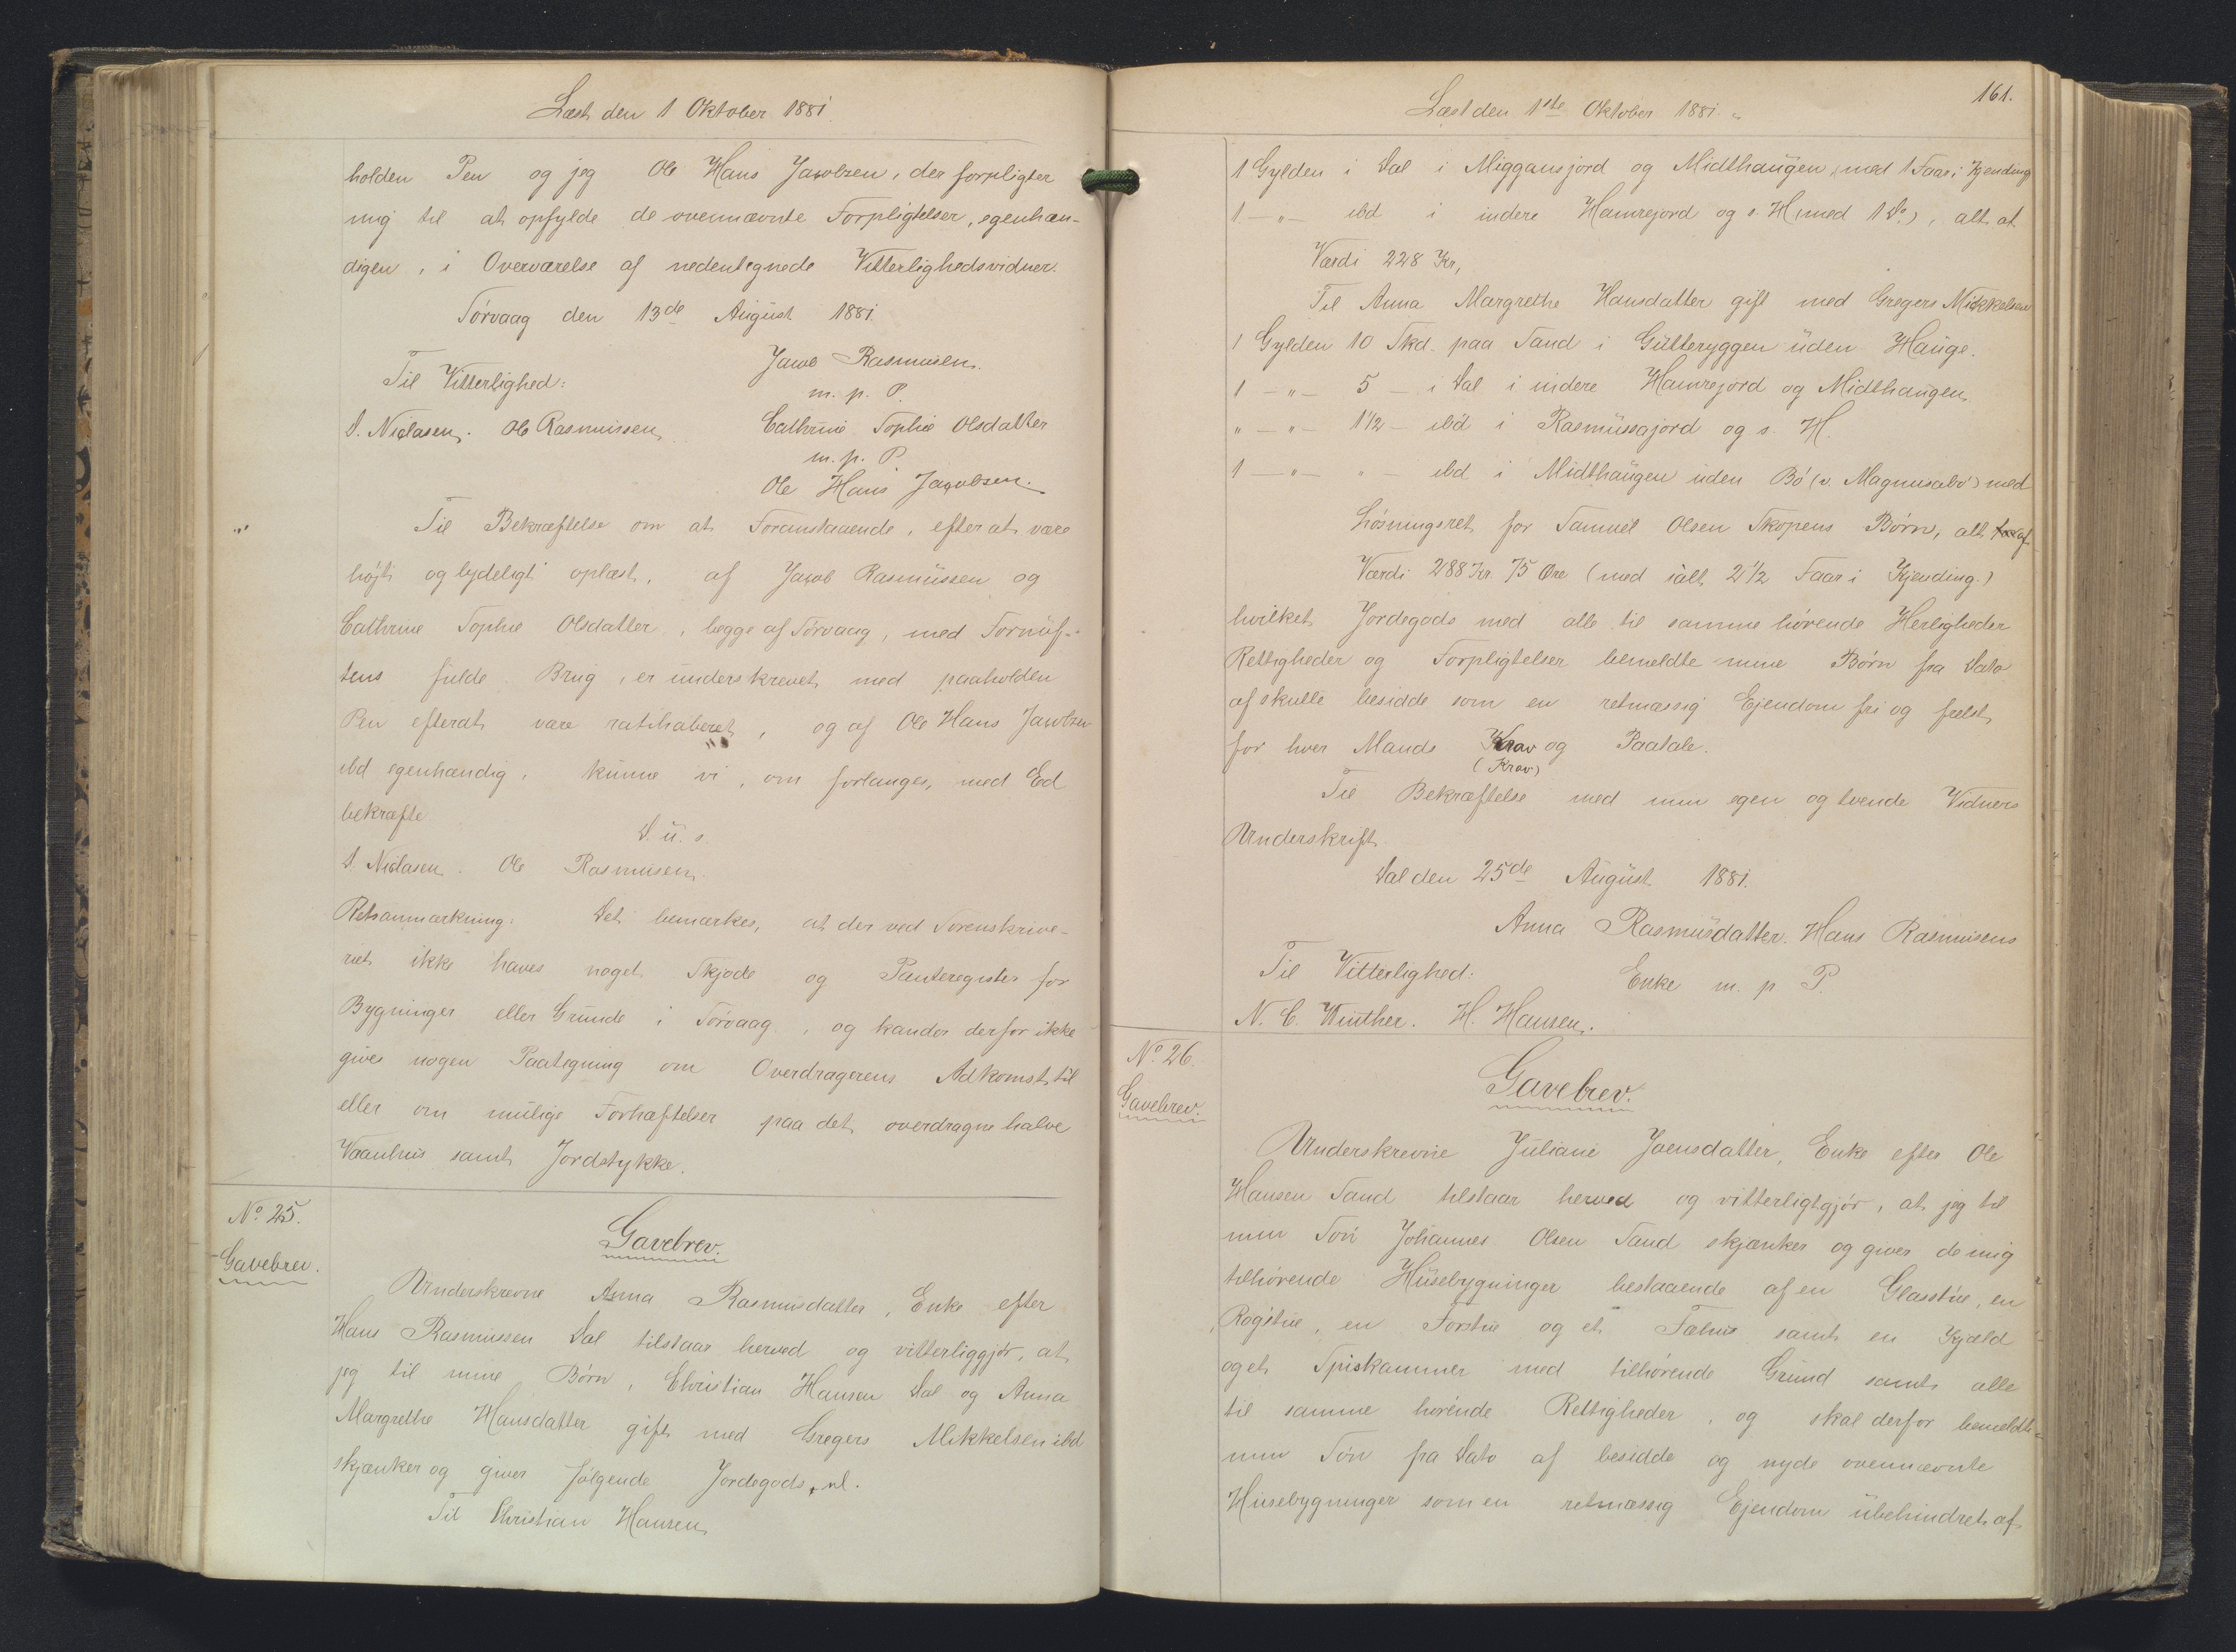 Læst den 1 Oktober 1881
holden Pen og jeg Ole Hans Jacobsen, der forpligter
mig til at opfylde de ovennævnte Forpligtelser, egenhæn-
digen, i Overværelse af nedentegnede Vitterlighedsvidner.
Sørvaag den 13de August 1881.
Jacob Rasmussen.
Til Vitterlighed:
m. p. P.
D. Niclasen. Ole Rasmussen
Cathrine Sophie Olsdatter
m. p. P.
Ole Hans Jacobsen.
Til Bekræftelse om at Foranstaaende, efter at være
højt og lydeligt oplæst, af Jacob Rasmüssen og
Cathrine Sophie Olsdatter, begge af Sørvaag, med Fornuf-
tens fulde Brug, er underskrevet med paaholden
Pen efterat være ratihaberet, og af Ole Hans Jacobsen
ibd egenhændig, kunne vi, om forlanges, med Ed
bekræfte
D. u. s.
D. Niclasen. Ole Rasmussen.
Retsanmærkning: Det bemærkes, at der ved Sorenskrive-
riet ikke haves noget Skjøde og Panteregister for
Bygninger eller Grunde i Sørvaag, og kan der derfor ikke
gives nogen Paategning om Overdragerens Adkomst til
eller om mulige Forhæftelser paa det overdragne halve
Vaanhus samt Jordstykke.
No. 25.
Gavebrev.
Gavebrev.
Underskrevne Anna Rasmusdatter, Enke efter
Hans Rasmussen Dal tilstaar herved og vitterliggjør, at
jeg til mine Børn, Christian Hansen Dal og Anna
Margrethe Hansdatter gift med Gregers Mikkelsen ibd
skjænker og giver følgende Jordegods, nl.
Til Christian Hansen
161.
Læst den 1ste Oktober 1881.
1 Gylden i Dal i Miggansjord og Midthaugen (med 1 Faar i Kjending
1 — " — ibd i indere Hamrejord og s. H. (med 1 Do.), alt at
Værdi 228 Kr,
Til Anna Margrethe Hansdatter gift med Gregers Mikkelsen
1 Gylden 10 Skd. paa Sand i Gütteryggen uden Hauge.
1 — " — 5 — i Dal i indere Hamrejord og Midthaugen
" — " — 1 1/2 — ibd i Rasmüssajord og s. H.
1 — " — " — ibd i Midthaugen uden Bø (v. Magnusabø) med
Løsningsret for Samuel Olsen Skopens Børn, alt af
Værdi 288 Kr. 75 Øre (med ialt 2 1/2 Faar i Kjending.)
hvilket Jordegods med alle til samme hørende Herligheder
Rettigheder og Forpligtelser bemeldte mine Børn fra Dato
af skulle besidde som en retmæssig Ejendom fri og frelst
for hver Mands Krav og Paatale.
(Krav)
Til Bekræftelse med min egen og tvende Vidners
Underskrift.
Dal den 25de August 1881.
Anna Rasmusdatter. Hans Rasmussens
Til Vitterlighed:
Enke m. p P.
N. C. Winther. H. Hansen.
No. 26.
Gavebrev.
Gavebrev.
Underskrevne Juliane Joensdatter, Enke efter Ole
Hansen Sand tilstaar herved og vitterligtgjør, at jeg til
min Søn Johannes Olsen Sand skjænker og giver de mig
tilhørende Husebygninger bestaaende af en Glasstue, en
Røgstue, en Forstue og et Fæhus samt en Kjæld
og et Spiskammer med tilhørende Grund samt alle
til samme hørende Rettigheder, og skal derfor bemeldte
min Søn fra Dato af besidde og nyde ovennævnte
Husebygninger som en retmæssig Ejendom ubehindret af